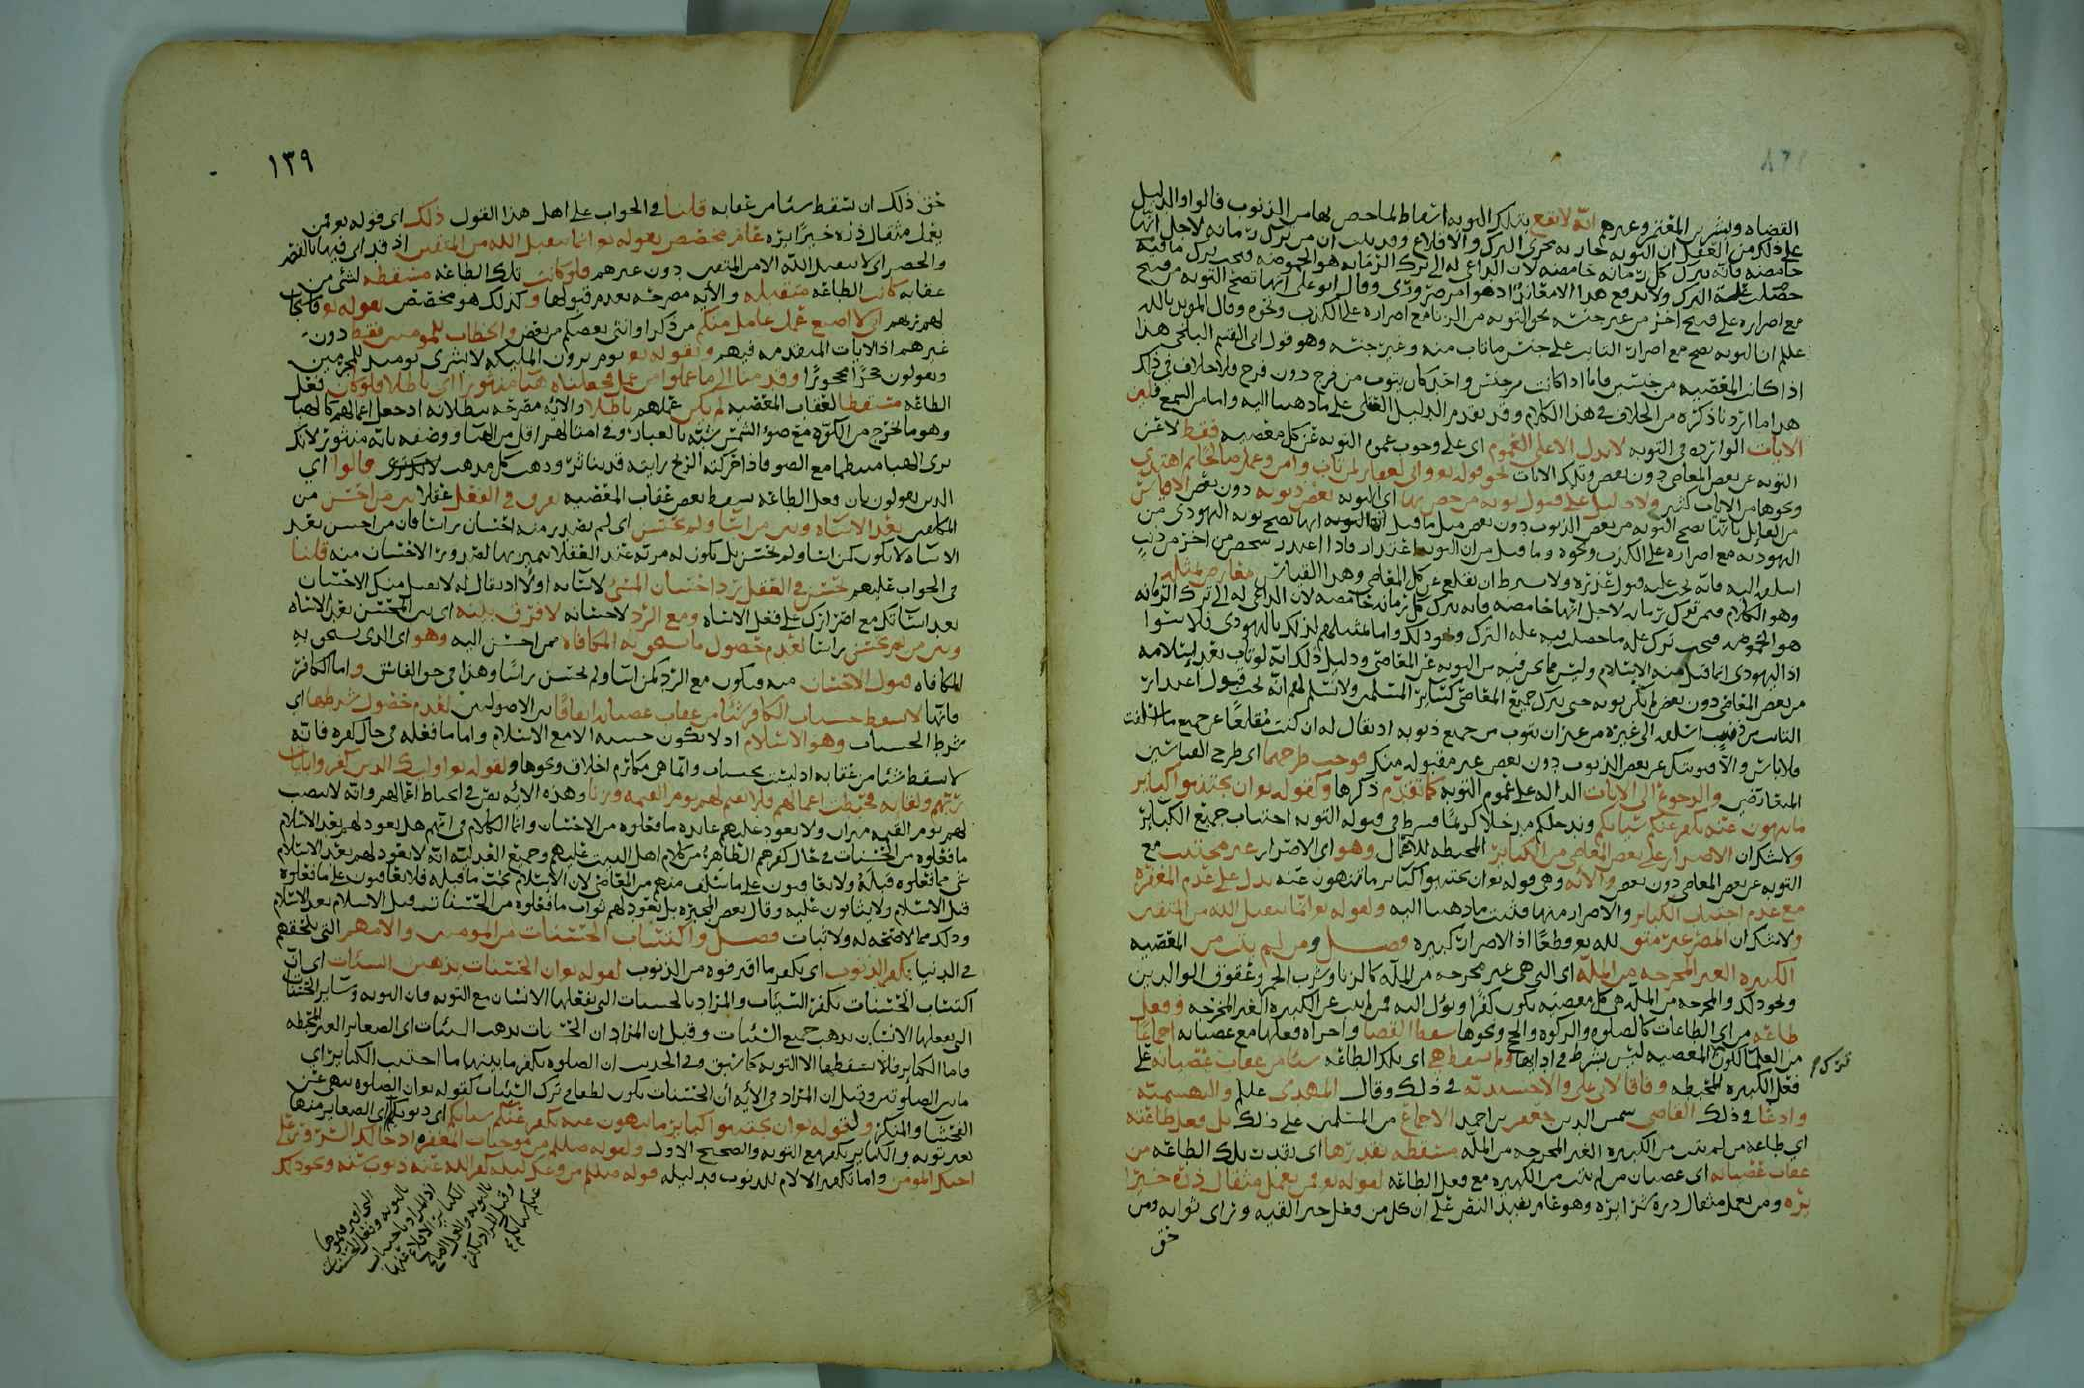 القضاه وبشر بن المعتمر وغيرهم انه لا تقع بتلك التوبه اسقاط لما خص بها من الذنوب قالوا والدليل
على ذلك من العقل ان التوبه جاريه مجرى الترك والاقلاع وقد ثبت ان من ترك رمانه لاجل انها
حامضه فانه يترك كل رمانه حامضه لان الداعي له الى ترك الرمانه هو الحموضه فيجب ترك ما فيه
مع اصراره على قبيح اخر من غير جنسه نحو التوبه من الزنا مع اصراره على الكذب ونحوه وقال المويد بالله
علم ان التوبه تصح مع اصرار التايب على جنس ما تاب منه وغير جنسه وهو قول ابي القسم البلخي هذا
اذا كان المعصيه من جنسين فاما اذا كانت من جنس واحد كان يتوب من فرج دون فرج فلا خلاف في ذلك
هذا ما اردنا ذكره من الخلاف في هذا الكلام وقد تقدم الدليل العقلي على ما ذهبنا اليه واما من السمع قلنا
الايات الوارده في التوبه لا تدل الا على العموم اي على وجوب عموم التوبه عن كل معصيه فقط لا عن
التوبه عن بعض المعاصي دون بعض وتلك الايات نحو قوله تع واني لغفار لمن تاب وامن وعمل صالحا ثم اهتدى
ونحوها من الايات كثير ولا دليل على قبول توبه من خص بها اي التوبه بعض ذنوبه دون بعض
اليهوديه مع اصراره على الكذب ونحوه وما قيل من ان التوبه اعتذار فاذا اعتذر شخص من اخر من ذنب
اسلفه اليه فانه يجب عليه قبول عذره ولا يشترط ان يقلع عن كل المعاصي وهذا القياس معارض بمثله
وهو الكلام فيمن ترك رمانه لاجل انها حامضه فانه يترك كل رمانه حامضه لان الداعي له الى ترك الرمانه
هو الحموضه فيجب ترك كل ما حصل فيه عله الترك ونحو ذلك واما تمثيلهم لذلك باليهودي فلا سوا
اذ اليهودي انما قبل منه الاسلام وليس مما نحن فيه من التوبه عن المعاصي ودليل ذلك انه لو تاب بعد اسلامه
من بعض المعاصي دون بعض لم يكن توبه حتى يترك جميع المعاصي كساير المسلمين ولا نسلم لهم انه يجب قبول اعتذار
التايب من ذنب اسلفه الى غيره من غير ان يتوب من جميع ذنوبه اذ يقال له ان كنت مقلعا عن جميع ما اسلفت
فلا باس والا فتوبتك عن بعض الذنوب دون بعض غير مقبوله منك فوجب طرحهما اي طرح القياسين
المتعارضين والرجوع الى الايات الداله على عموم التوبه كما تقدم ذكرها وكقوله تع ان تجتنبوا كباير
ما تنهون عنه نكفر عنكم سياتكم وندخلكم مدخلا كريما فشرط في قبوله التوبه اجتناب جميع الكباير
ولا شك ان الاصرار على بعض المعاصي من الكباير المحبطه للاعمال وهو اي الاصرار غير مجتنب مع
التوبه عن بعض المعاصي دون بعض والايه وهي قوله تع ان تجتنبوا كباير ما تنهون عنه تدل على عدم المغفره
مع عدم اجتناب الكباير والاصرار منها فثبت ما ذهبنا اليه ولقوله تع انما يتقبل الله من المتقين
ولا شك ان المصر غير متق لله تع قطعا اذ الاصرار كبيره فصل ومن لم يتب من المعصيه
الكبيره الغير المخرجه من المله اي التي هي غير مخرجه من المله كالزنا وشرب الخمر وعقوق الوالدين
ونحو ذلك والمخرجه من المله هي كل معصيه يكون كفرا ويؤل اليه فمن لم يتب عن الكبيره الغير المخرجه وفعل
طاعه من اي الطاعات كالصلوه والزكوه والحج ونحوها سقط القضا واجزاه فعلها مع عصيانه اجماعا
من العلما لكون ترك المعصيه ليس بشرط في ادائها ولم يسقط هي اي تلك الطاعه شيا من عقاب عصيانه على
فعل الكبيره المحبطه وفاقا لابي علي والاخشيديه في ذلك وقال المهدي عليلم والبهشميه
وادعا في ذلك القاضي شمس الدين جعفر بن احمد الاجماع من المسلمين على ذلك بل فعل طاعته
اي طاعه من لم يتب من الكبيره الغير المخرجه من المله مسقطه بقدرها اي بقدر تلك الطاعه من
عقاب عصيانه اي عصيان من لم يتب من الكبيره مع فعل الطاعه لقوله تع فمن يعمل مثقال ذره خيرا
يره ومن يعمل مثقال ذره شرا يره وهو عام يفيد النص على ان كل من فعل خير القيه وراى ثوابه ومن
حق
١٣٩
حق ذلك ان تسقط شيا من عقابه قلنا في الجواب على اهل هذا القول ذلك اي قوله تع فمن
يعمل مثقال ذره خيرا يره عام مخصص بقوله تع انما يتقبل الله من المتقين اذ قد اتى فيها بالقصر
والحصر اي لا يتقبل الله الا من المتقين دون غيرهم فلو كانت تلك الطاعه مسقطه لشي من
عقابه كانت الطاعه متقبله والايه مصرحه بعدم قبولها وكذلك هو مخصص بقوله تع فاستجاب
لهم ربهم اني لا اضيع عمل عامل منكم من ذكر او انثى بعضكم من بعض والخطاب للمومنين فقط دون
غيرهم اذ الايات المتقدمه فيهم وبقوله تع يوم يرون المليكه لا بشرى يوميذ للمجرمين
ويقولون حجرا محجورا وقدمنا الى ما عملوا من عمل فجعلناه هباء منثورا اي باطلا فلو كان فعل
الطاعه مسقطا لعقاب المعصيه لم يكن عملهم باطلا والايه مصرحه ببطلانه اذ جعل اعمالهم كالهبا
وهو ما يخرج من الكوه مع ضوء الشمس شبيه بالغبار وفي امثالهم اقل من الهبا ووصفه بانه منثور لانك
ترى الهبا منتظما مع الضو فاذا حركته الريح رايته قد تناثر وذهب كل مذهب قالوا اي
الذين يقولون بان فعل الطاعه يسقط بعض عقاب المعصيه نعرف في العقل عقلا بين من احسن من
المكلفين بعد الاساه وبين من اسا ولم يحسن اي لم يصدر منه احسان راسا فان من احسن بعد
الاساه لا يكون كمن اسا ولم يحسن بل يكون له مزيه عند العقلا يميز بها لصدور الاحسان منه قلنا
في الجواب عليهم يحسن في العقل رد احسان المسيء لاساته اولا اذ يقال له لا نقبل منك الاحسان
بعد اساتك مع اصرارك على فعل الاساه ومع الرد لاحسانه لا فرق بينه اي بين المحسن بعد الاساه
وبين من لم يحسن راسا لعدم حصول ما يستحق به المكافاه ممن احسن اليه وهو اي الذي يستحق به
المكافاه قبول الاحسان منه فيكون مع الرد كمن اسا ولم يحسن راسا وهذا في حق الفاسق واما الكافر
فانها لا يسقط حسنات الكافر شيا من عقاب عصيانه اتفاقا بين الاصوليين لعدم حصول شرطها اي
شرط الحسنات وهو الاسلام اذ لا يكون حسنه الا مع الاسلام واما ما فعله في حال كفره فانه
لا يسقط شيا من عقابه اذ ليست بحسنات وانما هي مكارم اخلاق ونحوها ولقوله تع اوليك الذين كفروا بايات
ربهم ولقايه فحبطت اعمالهم فلا نقيم لهم يوم القيمه وزنا وهذه الايه نص في احباط اعمالهم وانه لا ينصب
لهم يوم القيمه ميزان ولا يعود عليهم عايده ما فعلوه من الاحسان وانما الكلام في انهم هل يعود لهم بعد الاسلام
ما فعلوه من الحسنات في حال كفرهم الظاهر من كلام اهل البيت عليهم وجميع العدليه انه لا يعود لهم بعد الاسلام
شي مما فعلوه قبله ولا يعاقبون على ما سلف منهم من المعاصي لان الاسلام يجب ما قبله فلا يعاقبون على ما فعلوه
قبل الاسلام ولا يثابون عليه وقال بعض المجبره بل يعود لهم ثواب ما فعلوه من الحسنات قبل الاسلام بعد الاسلام
وذلك مما لا صحه له ولا ثبات فصل واكتساب الحسنات من المومنين والامهم التي تلحقهم
في الدنيا تكفر الذنوب اي تكفر ما اقترفوه من الذنوب لقوله تع ان الحسنات يذهبن السيئات اي ان
اكتساب الحسنات تكفر السيات والمراد بالحسنات التي يفعلها الانسان مع التوبه فان التوبه وساير الحسنات
التي يفعلها الانسان يذهب جميع السيات وقيل ان المراد ان الحسنات يذهب السيئات اي الصغاير الغير المحبطه
فاما الكباير فلا تسقطها الا التوبه كما سبق وفي الحديث ان الصلوه تكفر ما بينها ما اجتنب الكباير اي
ما بين الصلوتين وقيل ان المراد في الايه ان الحسنات تكون لطفا في ترك السيات كقوله تع ان الصلوه تنهى عن
الفحشا والمنكر ولقوله تع ان تجتنبوا كباير ما تنهون عنه نكفر عنكم سياتكم اي ذنوبكم اي الصغاير منها
بغير توبه والكباير تكفر مع التوبه والصحيح الاول ولقوله صللم من موجبات المغفره ادخالك السرور على
اخيك المومن واما تكفير الالام للذنوب فدليله قوله صللم من وعك ليله كفر الله عنه ذنوب سنه ونحو ذلك